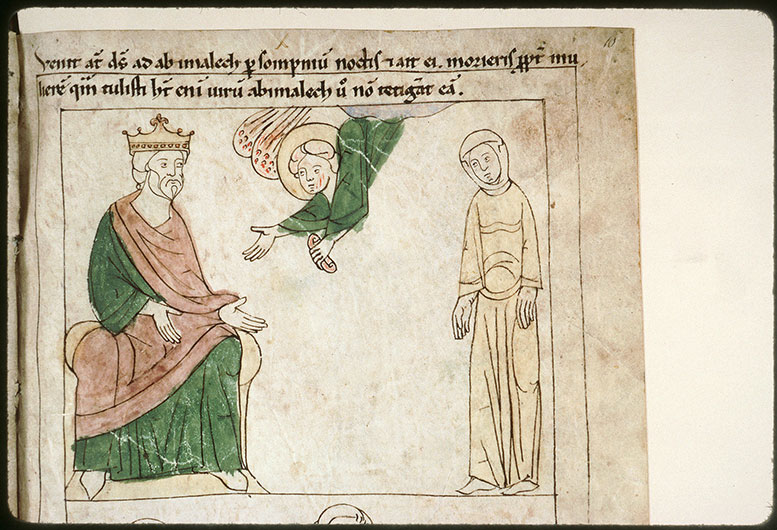 Venit aūt dς̄ ad abimalech ꝑ sompniū noctis ⁊ ait ei. morieris ꝓpt̄ mu
lierē qm̄ tulisti hт̄ eni᷑ virū abimalech u̾o nō tetig̾at eā.
10